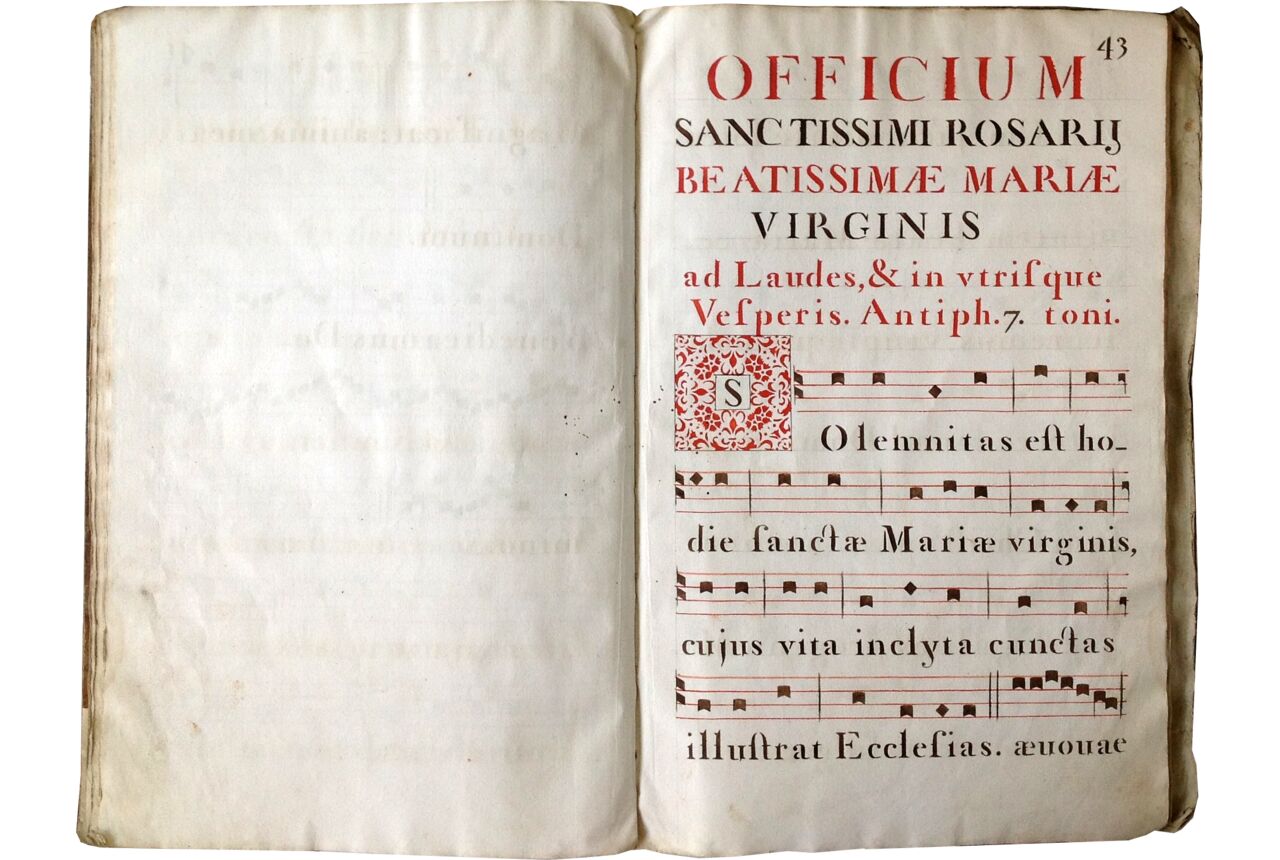 43
OFFICIUM
SANCTISSIMI ROSARIJ
BEATISSIMÆ MARIÆ
VIRGINIS
ad Laudes, & in vtriſque
Veſperis. Antiph. 7. toni.
SOlemnitas eſt ho-
die ſanctæ Mariæ virginis,
cujus vita inclyta cunctas
illuſtrat Eccleſias. æuouae